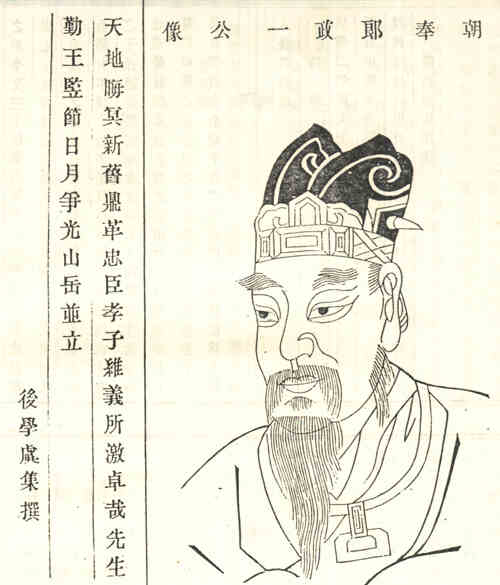 朝奉郎政一公像
天地晦冥新舊鼎革忠臣孝子維義所激卓哉先生
勤王監節日月爭光山岳並立
後學虞集撰